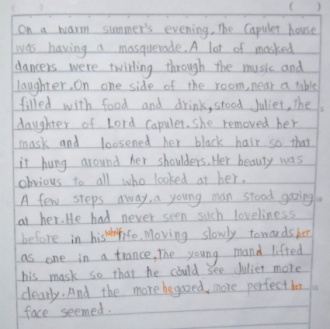 On a warm summer's evening, the Capulet house
was having a masquerade. A lot of masked
dancers were twirling through the music and
laughter. On one side of the room, near a table
filled with food and drink, stood Juliet, the
daughter of Lord Capulet. She removed her
mask and loosened her black hair so that
it hung around her shoulders. Her beauty was
obvious to all who looked at her.
A few steps away, a young man stood gazing
at her. He had never seen such loveliness
before in his whole life. Moving slowly towards her
as one in a trance, the young man lifted
his mask so that he could see Juliet more
clearly. And the more he gazed, more perfect her
face seemed.